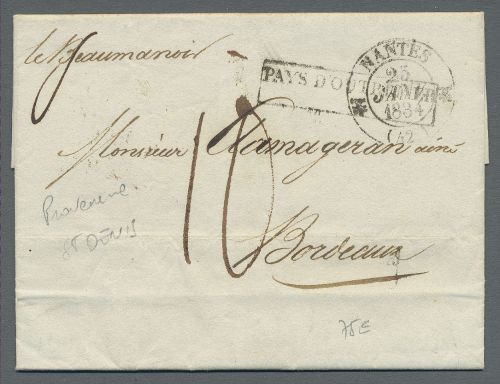 le Beaumanoir
PAYS D'OUTREMER
NANTES
25
JANV.
1834
(42)
Monsieur Lamageran ainé
10
Bordeaux
Provenance
St DENIS
75€